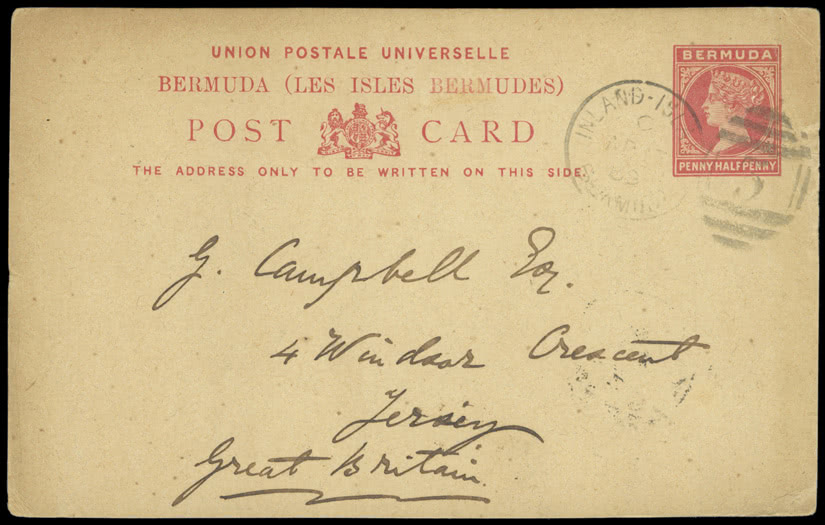 UNION POSTALE UNIVERSELLE
BERMUDA (LES ISLES BERMUDES)
POST CARD
THE ADDRESS ONLY TO BE WRITTEN ON THIS SIDE.
BERMUDA
PENNY HALFPENNY
INLAND-IS
G. Campbell Esq.
4 Windsor Crescent
Jersey
Great Britain.